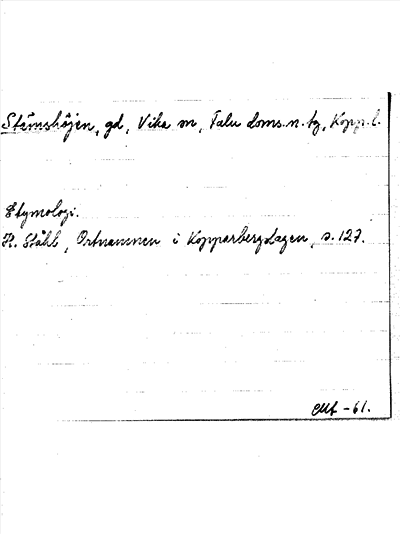 Stimshöjen, gd, Vika sn, Falu doms. n. tg, Kopp. l.
Etymologi.
H. Ståhl, Ortnamnen i Kopparbergslagen, s. 127.
-61.